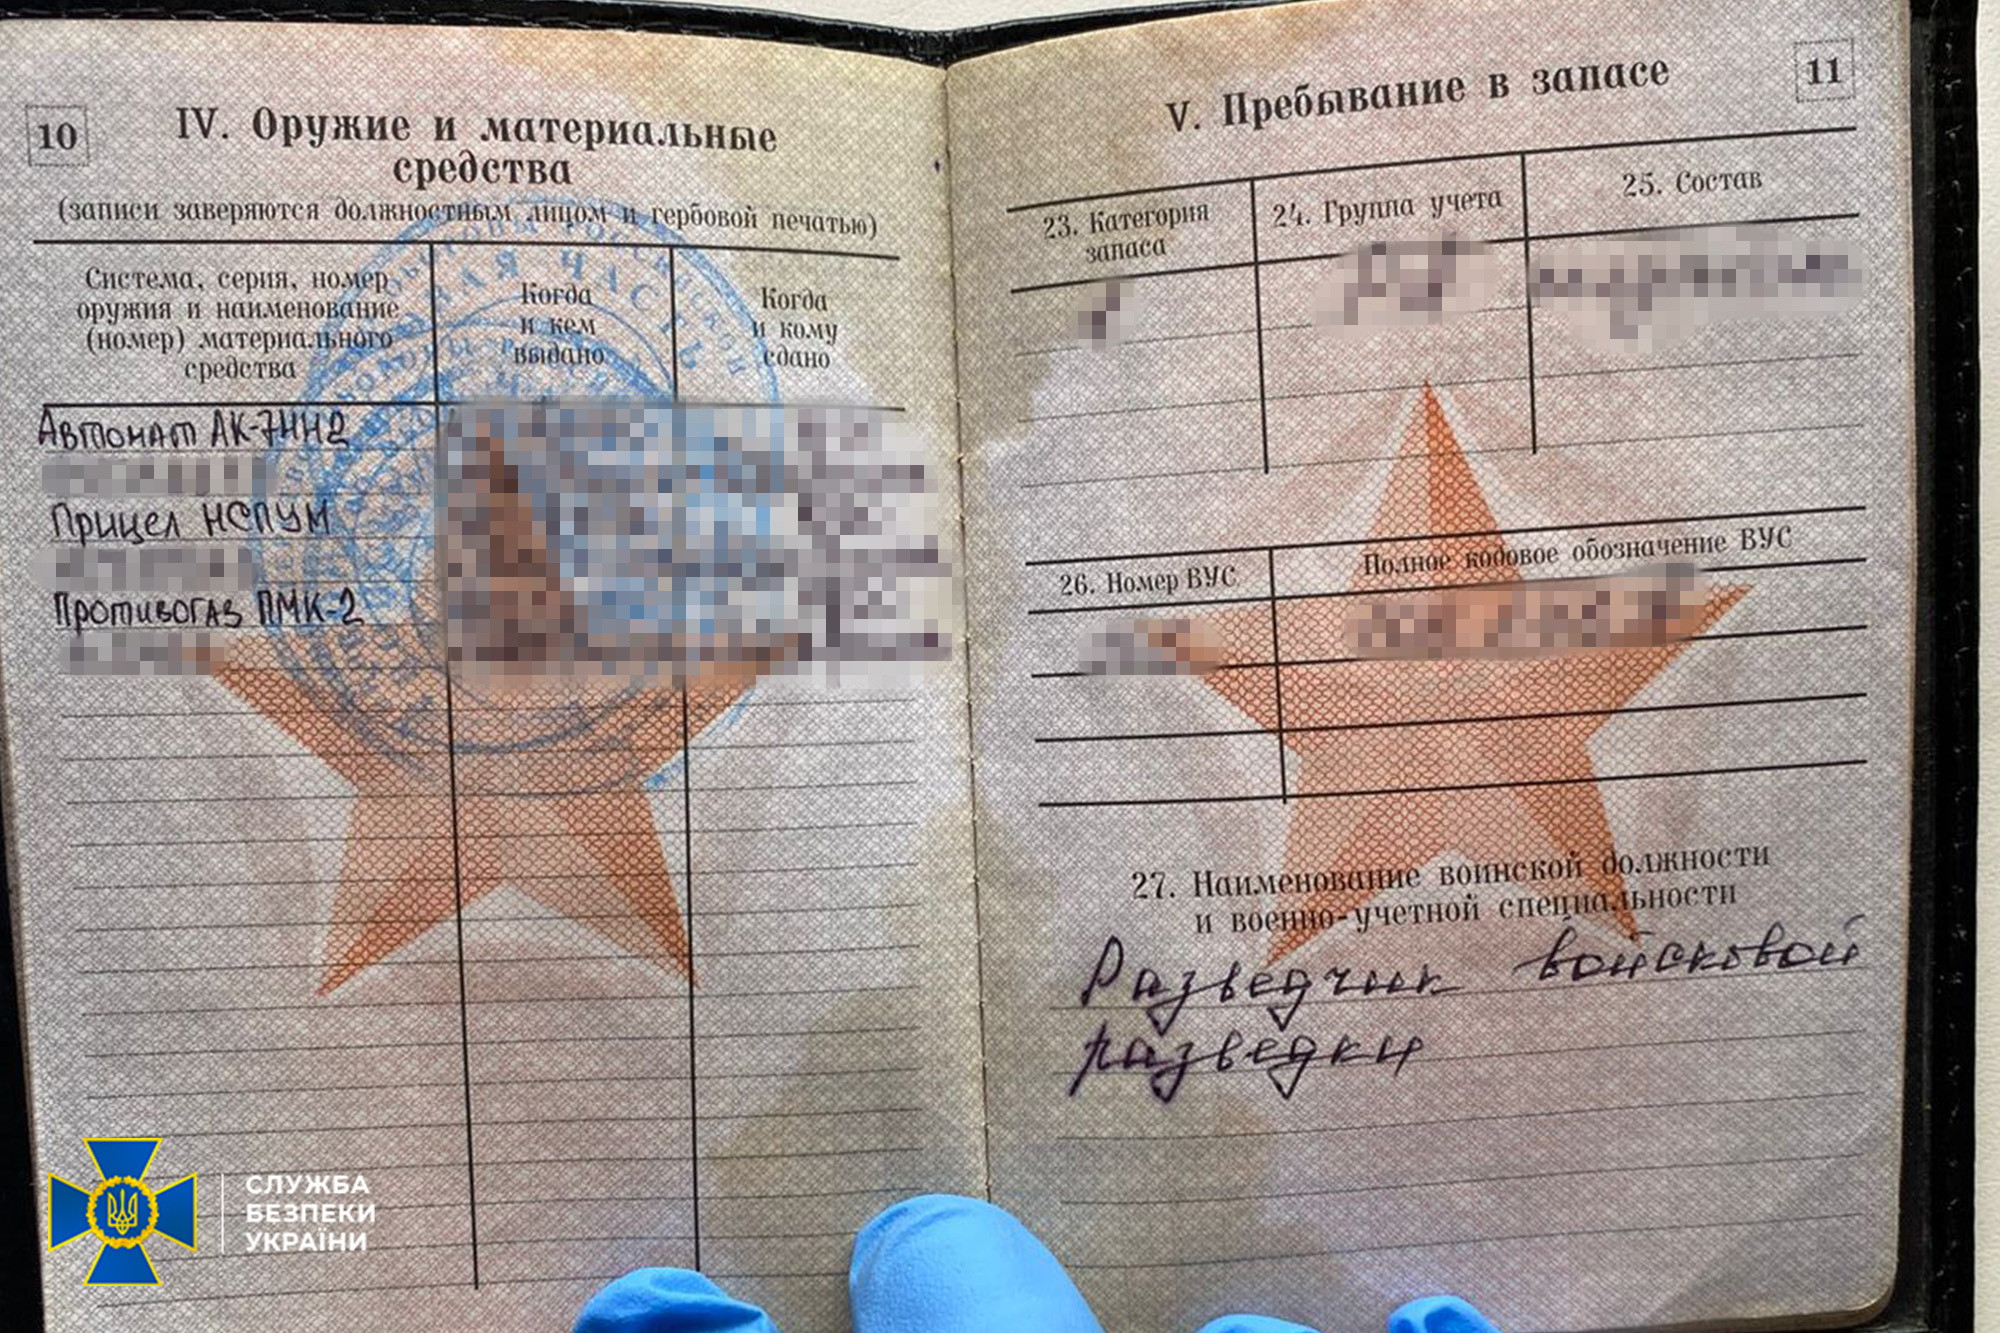 10
IV. Оружие и материальные
средства
(записи заверяются должностным лицом и гербовой печатью)
Система, серия, номер
оружия и наименование
(номер) материального
средства
Когда
и кем
выдано
Когда
и кому
сдано
Автомат АК-74Н2
Прицел НСПУМ
Противогаз ПМК-2
ЧАСТЬ
11
V. Пребывание в запасе
23. Категория
запаса
24. Группа учета
25. Состав
26. Номер ВУС
Полное кодовое обозначение ВУС
27. Наименование воинской должности
и военно-учетной специальности
Разведчик войсковой
разведки
СЛУЖБА
БЕЗПЕКИ
УКРАЇНИ